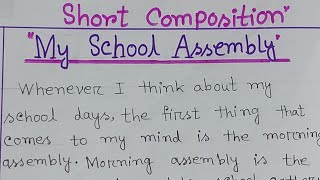 Short Composition"
"My School Assembly"
Whenever I think about my
school days, the first thing that
comes to my mind is the morning
assembly. Morning assembly is the